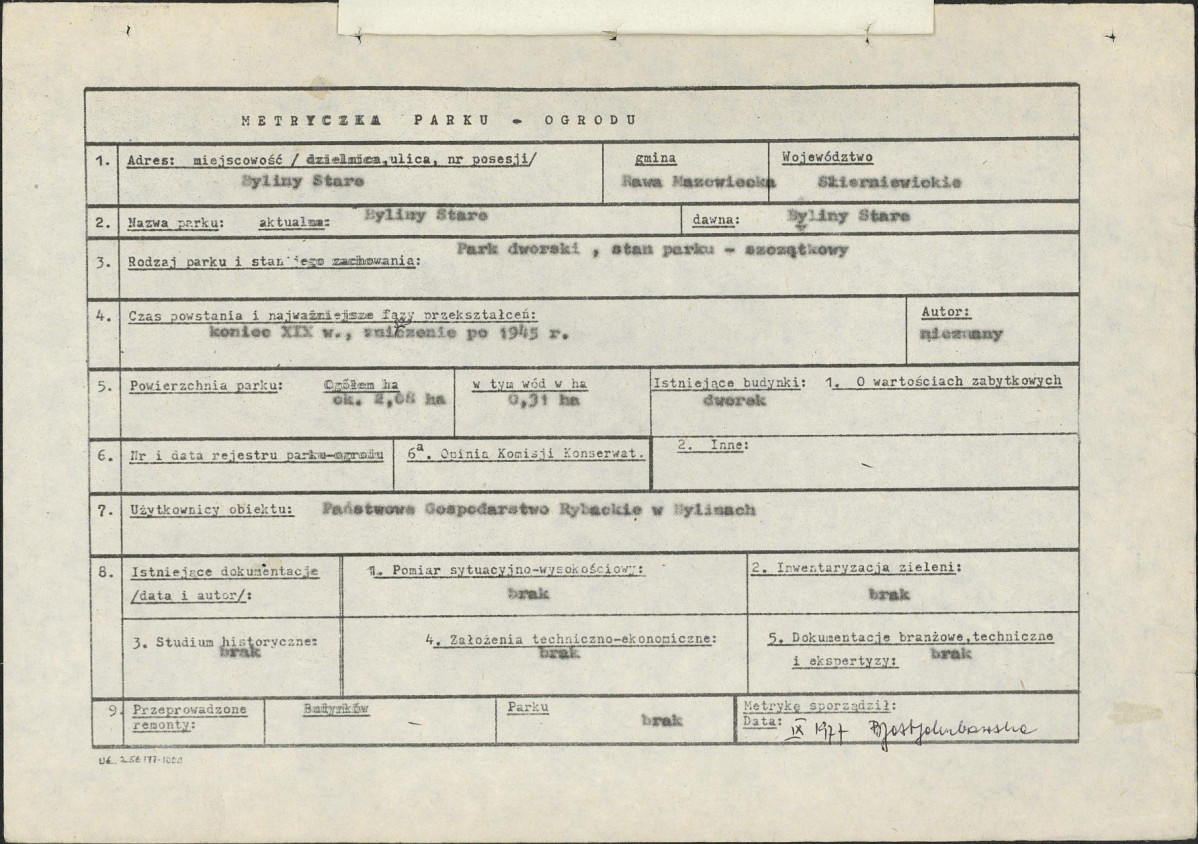 METRYCZKA PARKU - OGRODU
1. Adres: miejscowość / dzielnica,ulica, nr posesji/ gmina Województwo
Byliny Stare Rawa Mazowiecka Skierniewickie
2. Nazwa parku: aktualna: Byliny Stare dawna: Byliny Stare
Park dworski , stan parku - szczątkowy
3. Rodzaj parku i stan jego zachowania:
4. Czas powstania i najważniejsze fazy przekształceń: Autor:
koniec XIX w., zniszenie po 1945 r. nieznany
5. Powierzchnia parku: Ogółem ha w tym wód w ha Istniejące budynki: 1. O wartościach zabytkowych
ok. 2,08 ha 0,31 ha dworek
6. Nr i data rejestru parku-ogrodu 6a. Opinia Komisji Konserwat. 2. Inne:
-
7. Użytkownicy obiektu: Państwowe Gospodarstwo Rybackie w Bylinach
8. Istniejące dokumentacje 1. Pomiar sytuacyjno-wysokościowy: 2. Inwentaryzacja zieleni:
/data i autor/: brak brak
3. Studium historyczne: 4. Założenia techniczno-ekonomiczne: 5. Dokumentacje branżowe,techniczne
brak brak i ekspertyzy: brak
9. Przeprowadzone Budynków Parku Metrykę sporządził:
remonty: - brak Data: IX 1977